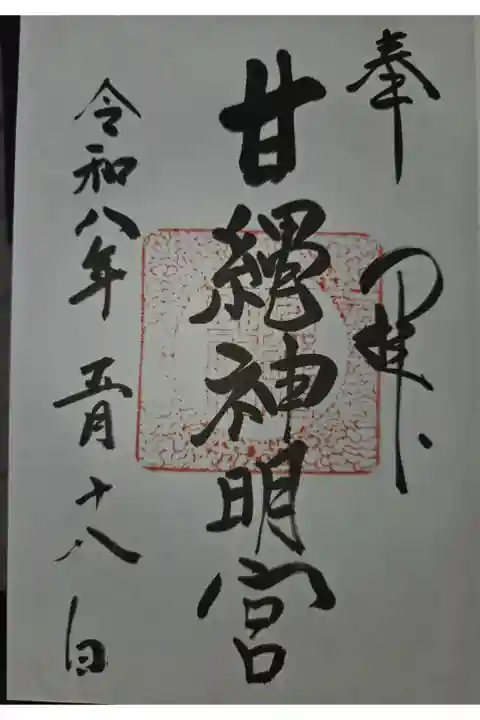 奉拝
甘縄神明宮
令和八年五月十八日